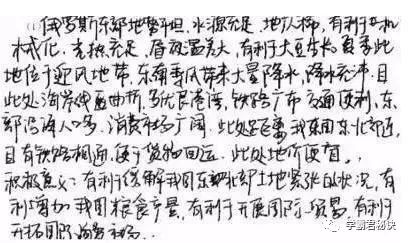 (1)俄罗斯东部地势平坦,水源充足,地广人稀,有利于机
械化,光照充足,昼夜温差大,有利于大豆生长。夏季此
地位于迎风地带,东南季风带来大量降水,降水充沛。且
此处海岸线曲折,多优良港湾,铁路广布交通便利,东
部沿海人口多,消费市场广阔,此处距离我国东北部近,
且有铁路相通,便于货物回运。此处地价便宜。
积极意义:有利于缓解我国东北部土地紧张的状况,有
利增加我国粮食产量,有利于开展国际贸易,有利于
开拓国际海外市场。
学霸君秘诀